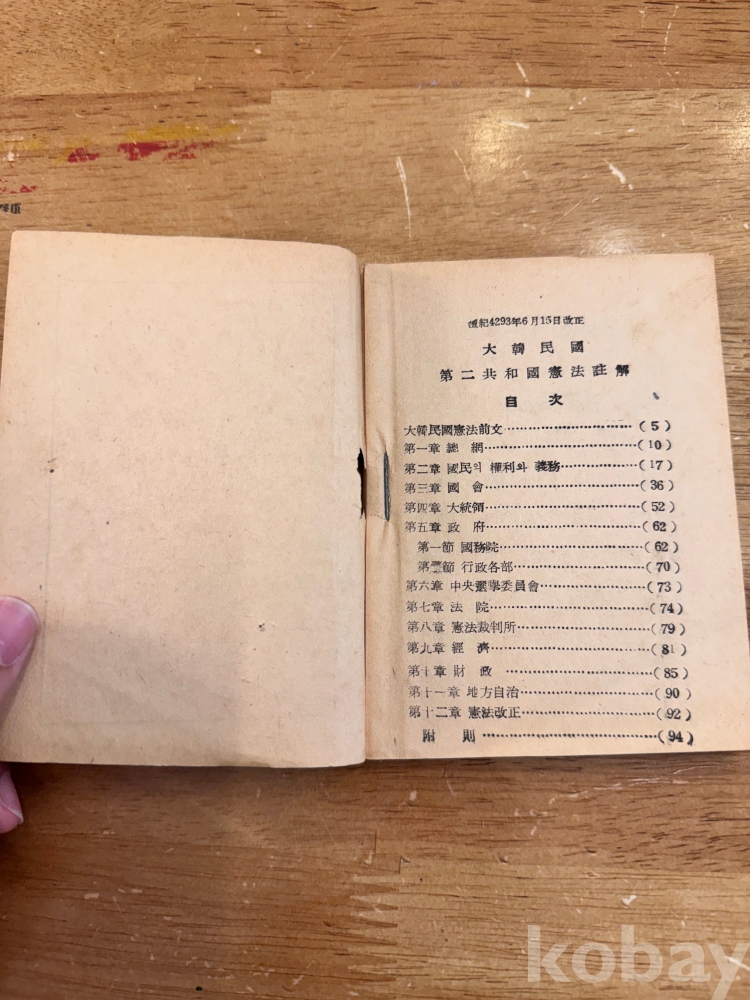 檀紀4293年6月15日改正
大韓民國
第二共和國憲法註解
目次
大韓民國憲法前文……………………(5)
第一章 總綱……………………(10)
第二章 國民의 權利와 義務……………(17)
第三章 國會……………………(36)
第四章 大統領……………………(52)
第五章 政府……………………(62)
第一節 國務院……………………(62)
第二節 行政各部……………………(70)
第六章 中央選擧委員會……………(73)
第七章 法院……………………(74)
第八章 憲法裁判所……………………(79)
第九章 經濟……………………(81)
第十章 財政……………………(85)
第十一章 地方自治……………………(90)
第十二章 憲法改正……………………(92)
附則……………………(94)
kobay